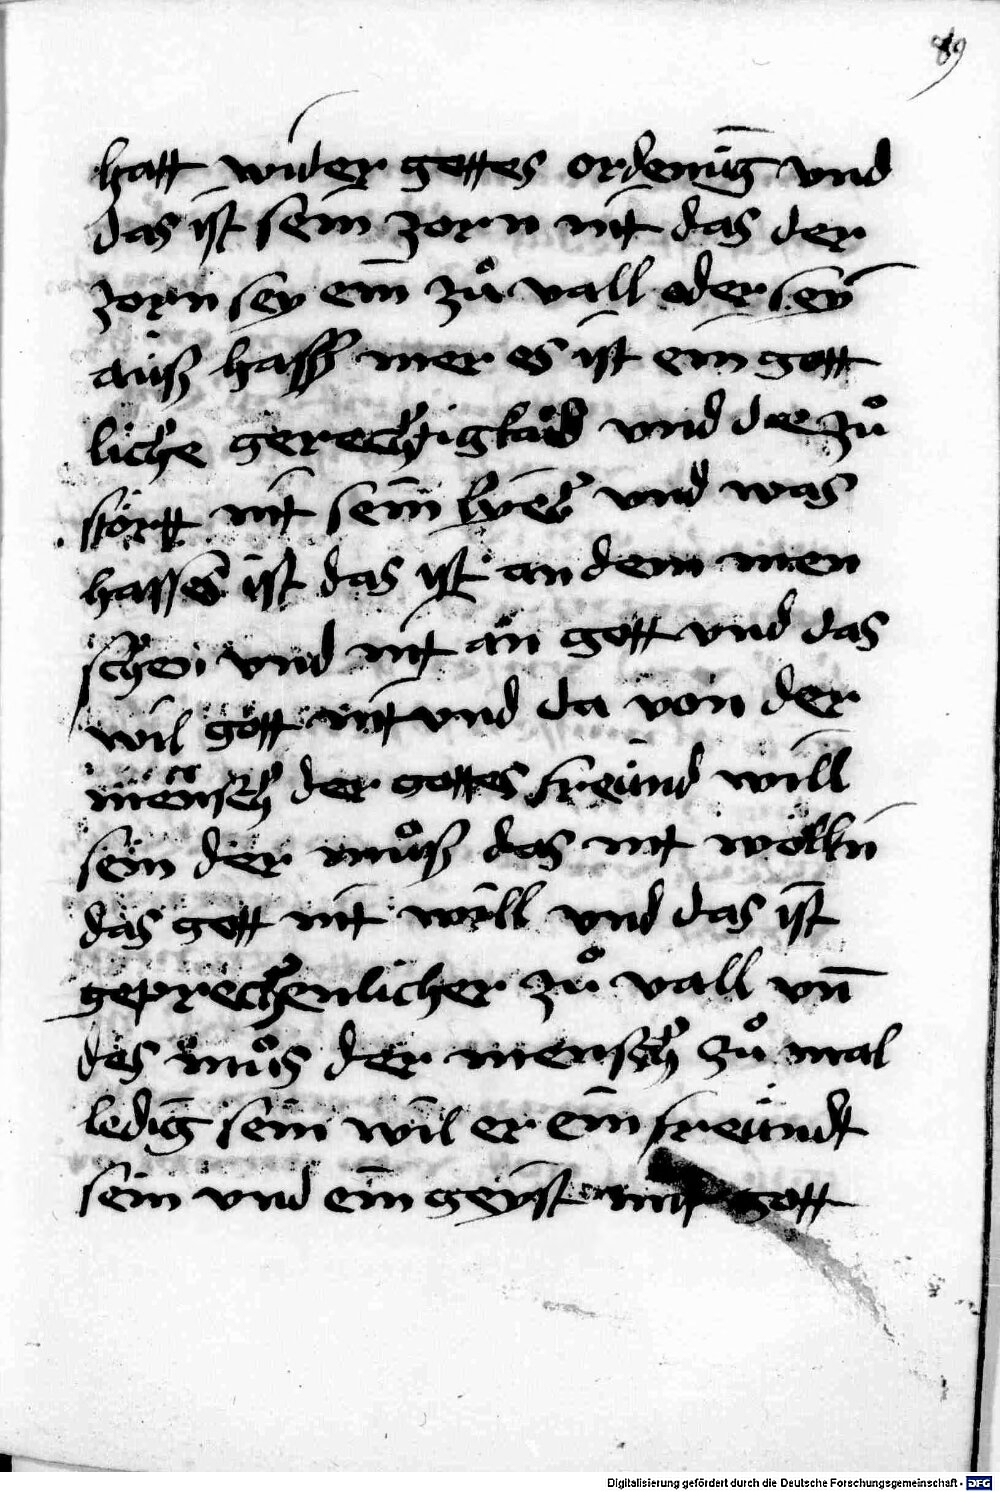 89
hatt wider gottes ordenūg vnd
das ist sein zorn nit das der
zorn sey ein zů vall oder sey
auß hasß mer es ist ein gott
liche gerechtigkaid vnd die zů
stört nit sein und was
hasses ist das ist an dem men
schen vnd nit an gott vnd das
wil gott nit vnd da von der
mensch der gottes freund will
sein der můß das nit wölln
das gott nit wöll vnd das ist
geprechenlicher zů vall vn̄
des můs der mensch zů mal
ledig sein wil er ein freundt
sein vnd ein geyst mit gott
Digitalisierung gefördert durch die Deutsche Forschungsgemeinschaft - DFG